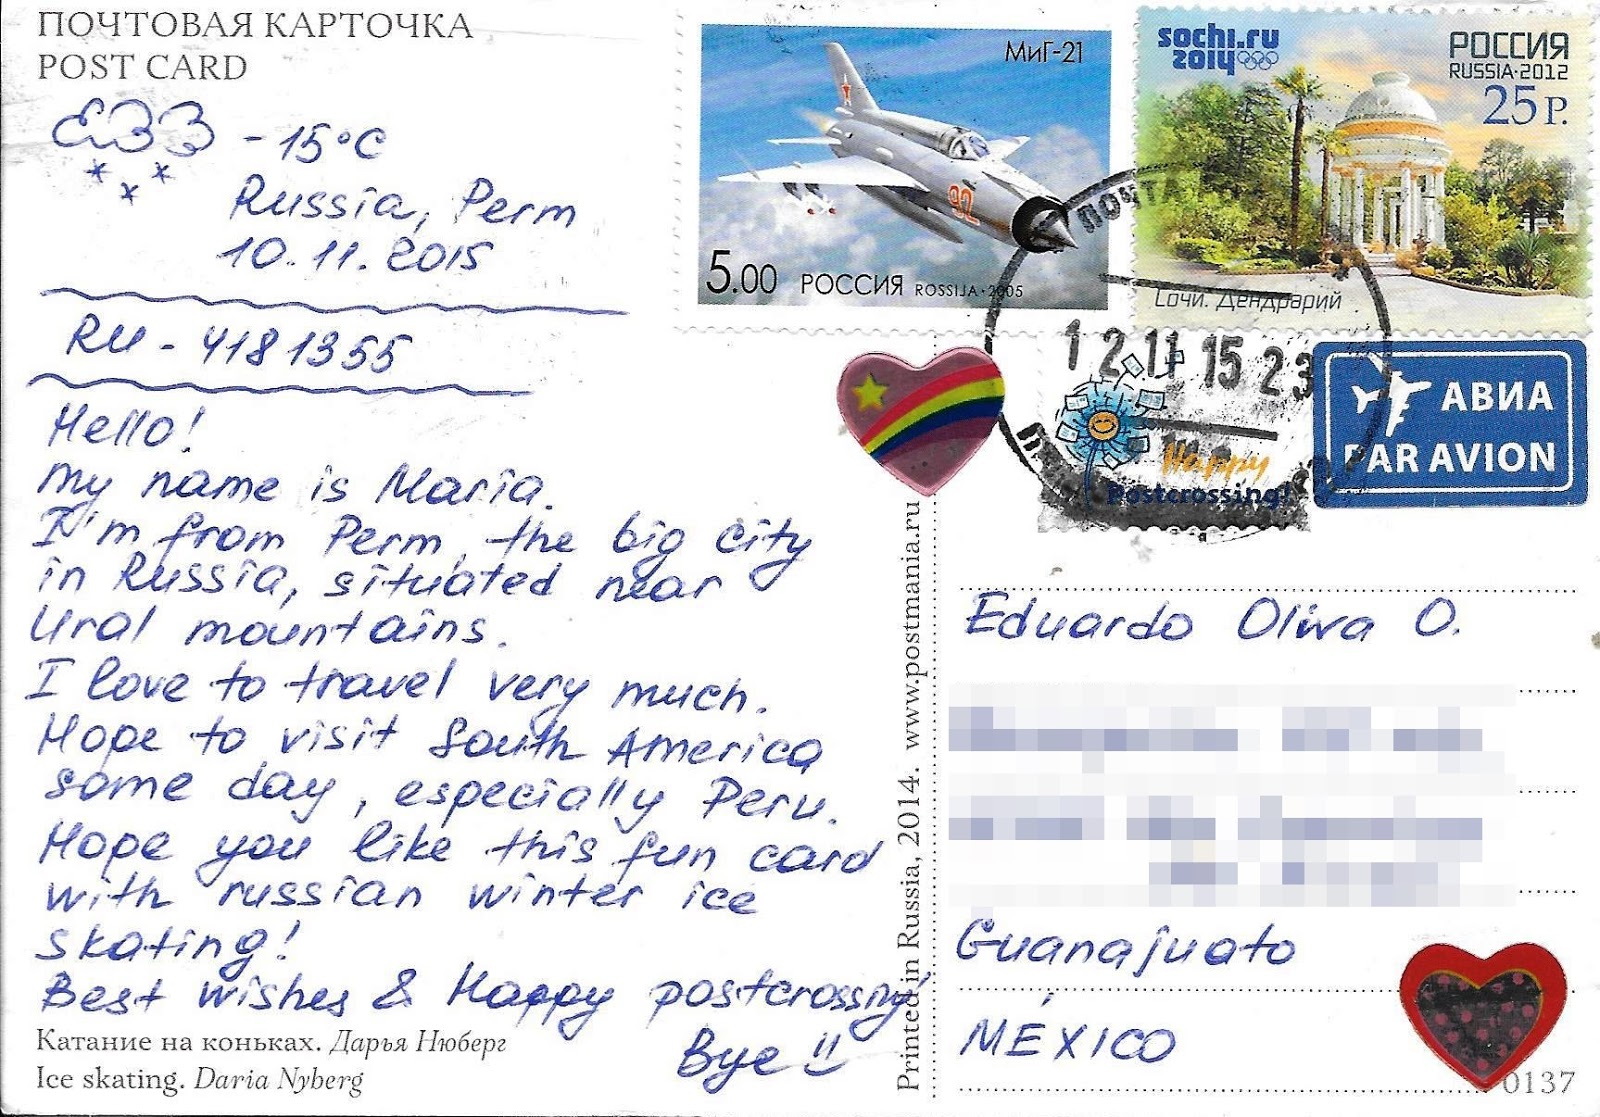 ПОЧТОВАЯ КАРТОЧКА
POST CARD
-15°C
Russia, Perm
10.11.2015
RU-4181355
Hello!
My name is Maria.
I'm from Perm, the big city
in Russia, situated near
Ural mountains.
I love to travel very much.
Hope to visit South America
some day, especially Peru.
Hope you like this fun card
with russian winter ice
skating!
Best wishes & Happy postcrossing!
Bye
Катание на коньках. Дарья Нюберг
Ice skating. Daria Nyberg
Printed in Russia, 2014. www.postmania.ru
МиГ-21
5.00 РОССИЯ ROSSIJA·2005
sochi.ru
2014
РОССИЯ
RUSSIA·2012
25 Р.
Сочи. Дендрарий
ПОЧТА
12 11 15 23
Happy
Postcrossing!
АВИА
PAR AVION
Eduardo Oliva O.
Guanajuato
MÉXICO
0137